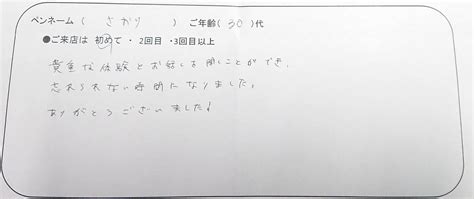 ペンネーム( さおり ) ご年齢( 30 )代
●ご来店は 初めて ・ 2回目 ・3回目以上
貴重な体験とお話しを聞くことができ、
忘れられない時間になりました。
ありがとうございました!